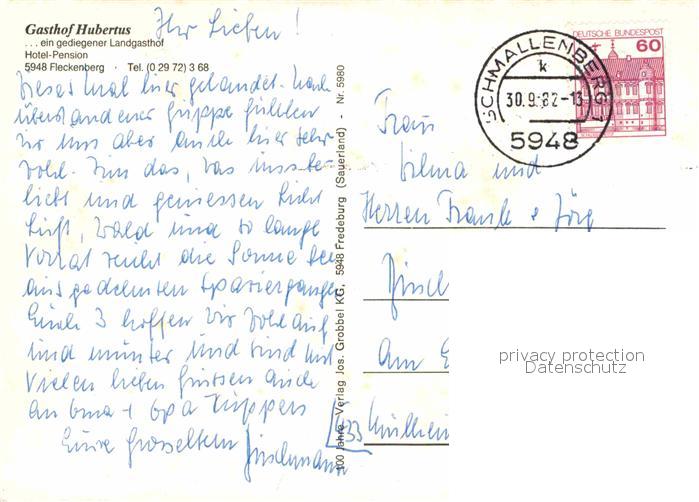 Gasthof Hubertus
...ein gediegener Landgasthof
Hotel-Pension
5948 Fleckenberg · Tel. (0 29 72) 3 68
Ihr Lieben!
Dieses Mal hier gelandet. Nach
überstandener Grippe fühlen
wir uns aber auch hier sehr
wohl. Tun das, was uns be-
liebt und geniessen Licht
Luft, Wald und so lange
Vorrat reicht die Sonne bei
ausgedehnten Spaziergängen
Euch 3 hoffen wir wohlauf
und munter und sind mit
vielen lieben Grüssen auch
an Oma + Opa Küppers
Eure Grosseltern
100 Jahre Verlag Jos. Grobbel KG, 5948 Fredeburg (Sauerland) - Nr. 5980
SCHMALLENBERG 1
k
30.9.82-13
5948
DEUTSCHE BUNDESPOST
60
Frau
und
Herren Frank + Jörg
Am
433 Mülheim
privacy protection
Datenschutz